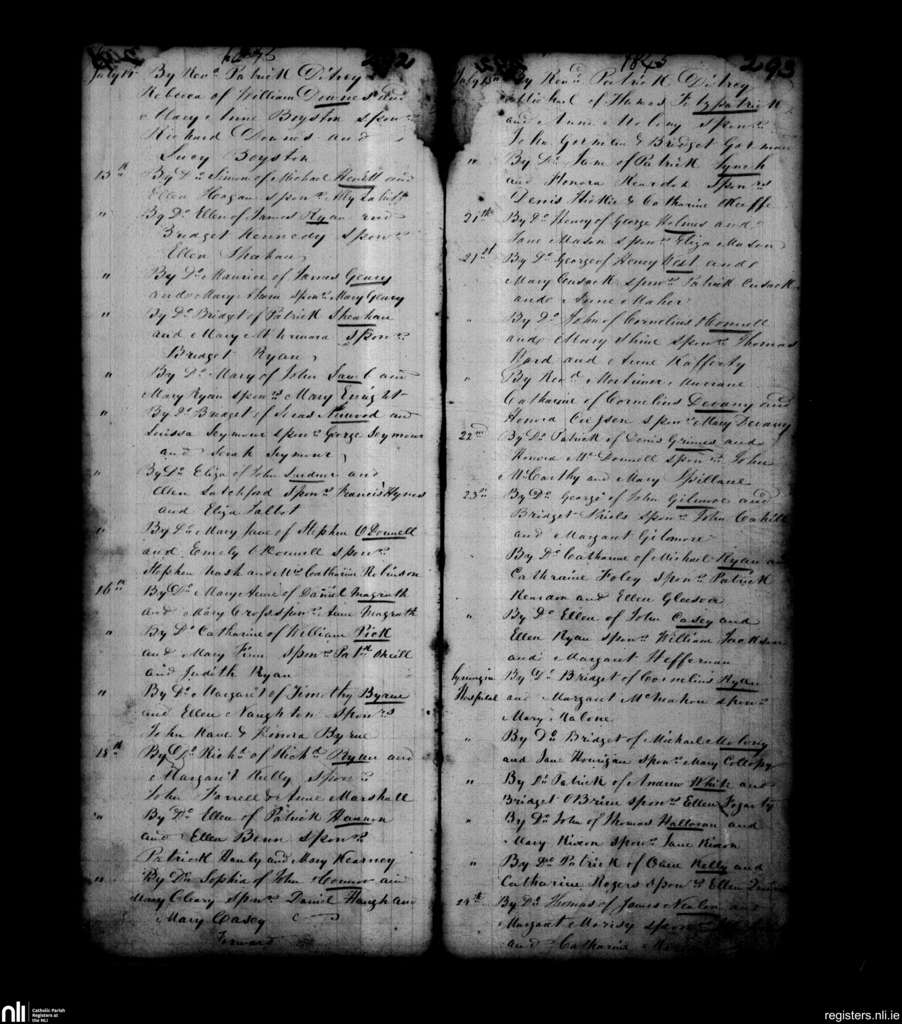 1845 292
July 11th By Revd Patrick Ditroy
Rebecca of William Downes and
Mary Anne Boyston sponrs
Richard Downes and
Lucy Boyston
13th By Do Simon of Michael Hewitt and
Ellen Hogan sponr
" By Do Ellen of James Ryan and
Bridget Kennedy sponr
Ellen Shahan
" By Do Maurice of James Geary
and Mary Ahern sponr Mary Geary
" By Do Bridget of Patrick Sheahan
and Mary sponr
Bridget Ryan
" By Do Mary of John and
Mary Ryan sponr Mary Enright
" By Do Bridget of and
Seymour sponrs George Seymour
and Sarah Seymour
" By Do Eliza of John and
Ellen Latchford sponrs Francis Hynes
and Eliza Talbot
" By Do Mary Jane of Stephen O'Donnell
and Emely O'Donnell sponrs
Stephen Nash and Mrs Catharine Robinson
16th By Do Mary Anne of Daniel Magrath
and Mary Cross sponr Anne Magrath
" By Do Catharine of William Vick
and Mary Finn sponrs Patk ONeill
and Judith Ryan
" By Do Margaret of Timothy Byrne
and Ellen Naughton sponrs
John Kane & Honora Byrne
18th By Do Richd of Richd Ryan and
Margaret Kelly sponrs
John Farrell & Anne Marshall
" By Do Ellen of Patrick Hannon
and Ellen Benn sponrs
Patrick Hanly and Mary Kearney
" By Do Sophia of John Connor and
Mary Cleary sponrs Daniel Haugh and
Mary Casey
Forward
1845 293
July By Revd Patrick Ditroy
Michael of Thomas Fitzpatrick
and Anne Molony sponrs
John Gorman & Bridget Gorman
" By Do Jane of Patrick Lynch
and Honora Reardon sponrs
Denis Hickie & Catharine OKeeffe
21th By Do Henry of George Holmes and
Jane Mason sponr Eliza Mason
21st By Do George of Henry West and
Mary Cusack sponrs Patrick Cusack
and Anne Maher
" By Do John of Cornelius OConnell
and Mary Shine sponrs Thomas
Ward and Anne Rafferty
" By Revd Mortimer
Catharine of Cornelius Devany and
Honora sponr Mary Devany
22nd By Do Patrick of Denis Grimes and
Honora McDonnell sponrs John
McCarthy and Mary Spillane
23rd By Do George of John Gilmore and
Bridget Shiels sponrs John Cahill
and Margaret Gilmore
" By Do Catharine of Michael Ryan and
Cathraine Foley sponrs Patrick
Kearson and Ellen Gleeson
" By Do Ellen of John Casey and
Ellen Ryan sponrs William Jackson
and Margaret Heffernan
Lying in By Do Bridget of Cornelius Ryan
Hospital and Margaret McMahon sponr
Mary Malone
" By Do Bridget of Michael Molony
and Jane Hourigan sponr Mary Collopy
" By Do Patrick of Andrew White and
Bridget OBrien sponr Ellen Fogarty
" By Do John of Thomas Halloran and
Mary Nixon sponr Jane Nixon
" By Do Patrick of Kelly and
Catharine Rogers sponr Ellen
24th By Do Thomas of James Nealon and
Margaret sponrs
and Catharine
nli
Catholic Parish
Registers at
the NLI
registers.nli.ie